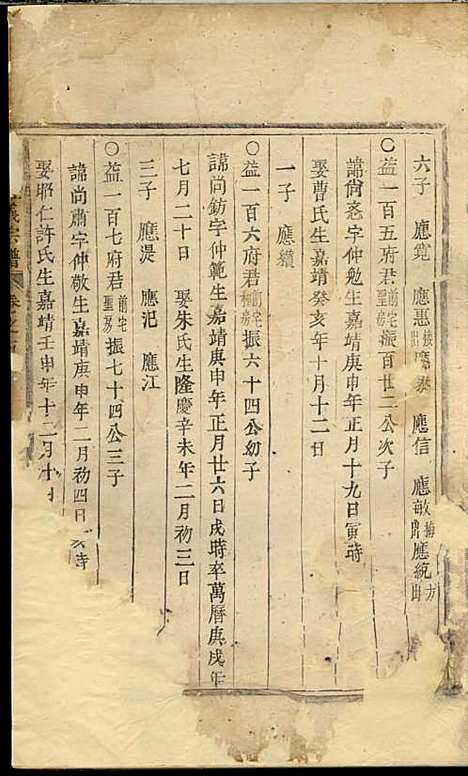 六子 應寬 應惠 應泰 應信 應敏 應統
○益一百五府君前宅聖房振百廿二公次子
諱尙悫字仲勉生嘉靖庚申年正月十九日寅時
娶曹氏生嘉靖癸亥年十月十二日
一子 應纘
○益一百六府君前宅房振六十四公幼子
諱尚鈁字仲範生嘉靖庚申年正月廿六日戌時卒萬曆庚戌年
七月二十日 娶朱氏生隆慶辛未年二月初三日
三子 應湜 應汜 應江
○益一百七府君前宅聖房振七十四公三子
諱尚肅字仲敬生嘉靖庚申年二月初四日時
娶昭仁許氏生嘉靖壬申年十二月十
宗譜 卷之